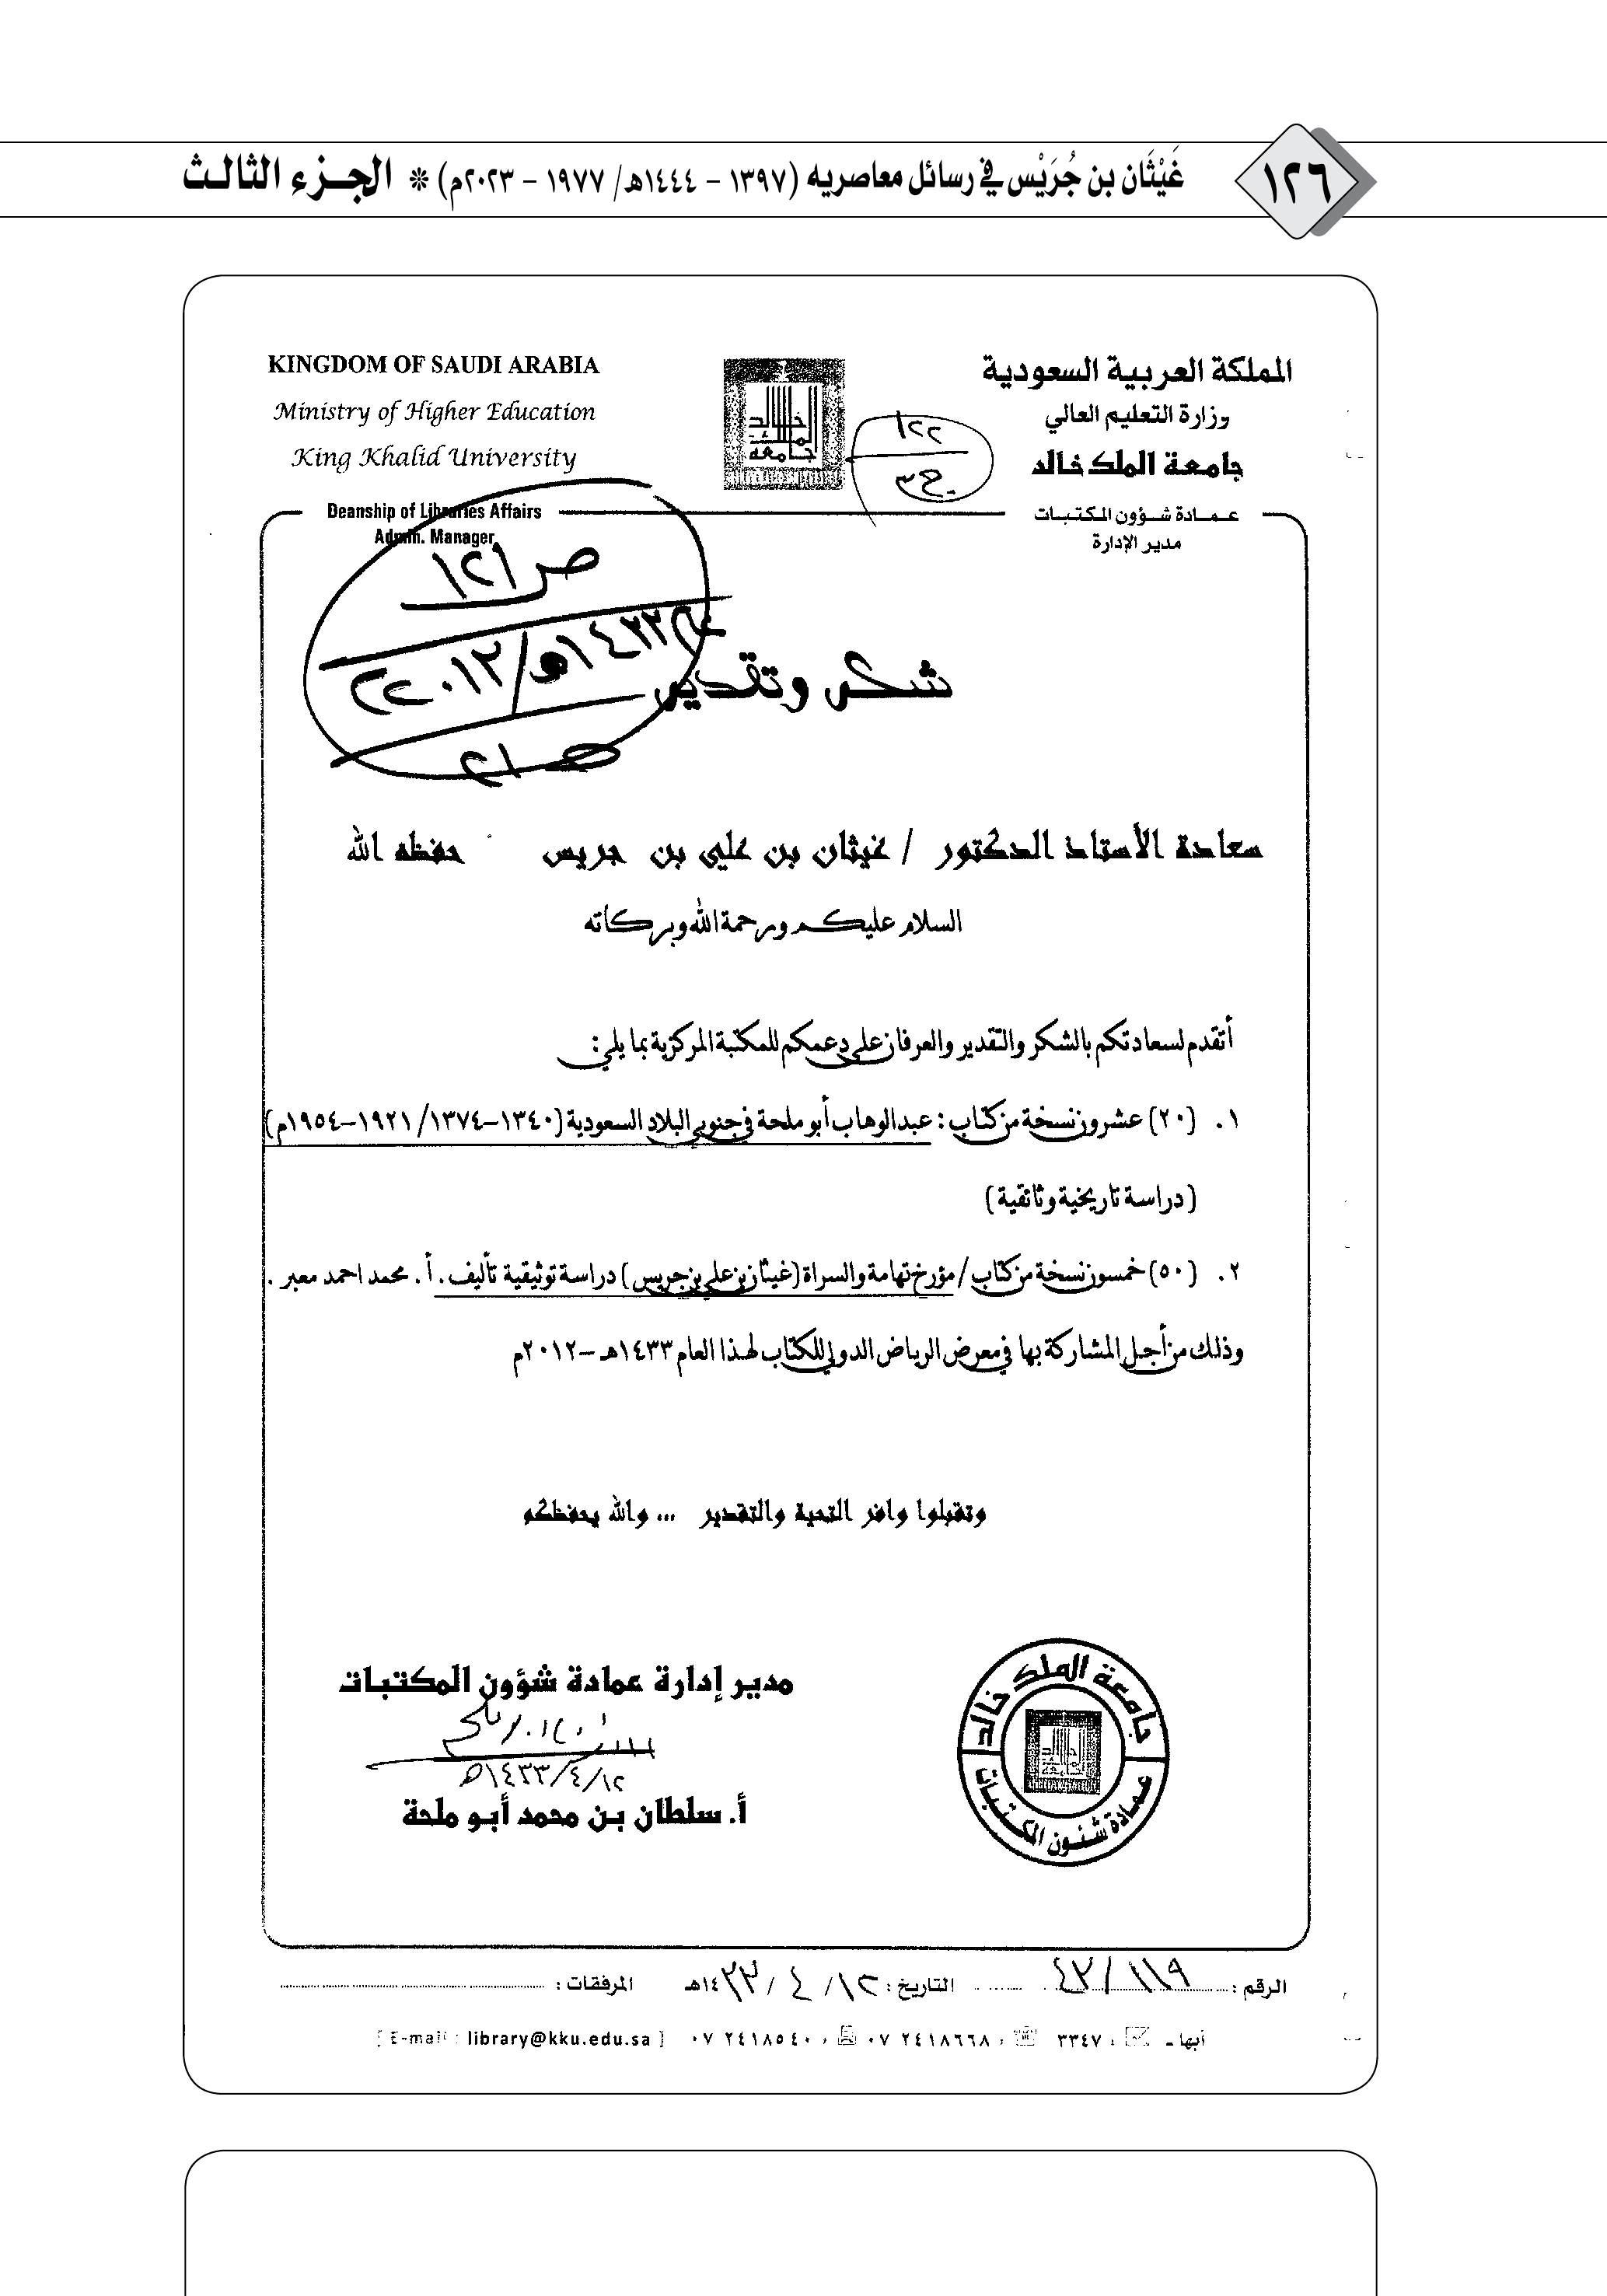 ١٢٦
غَيْثَان بن جُرَيْس في رسائل معاصريه (١٣٩٧ - ١٤٤٤هـ/ ١٩٧٧ - ٢٠٢٣م) * الجزء الثالث
المملكة العربية السعودية
وزارة التعليم العالي
جامعة الملك خالد
عمادة شؤون المكتبات
مدير الإدارة
١٢٢
ج٣
KINGDOM OF SAUDI ARABIA
Ministry of Higher Education
King Khalid University
Deanship of Libraries Affairs
Admin. Manager
ص١٢١
١٤٣٣هـ/٢٠١٢
شكر وتقدير
سعادة الأستاذ الدكتور / غيثان بن علي بن جريس حفظه الله
السلام عليكم ورحمة الله وبركاته
أتقدم لسعادتكم بالشكر والتقدير والعرفان على دعمكم للمكتبة المركزية بما يلي:
١. (٢٠) عشرون نسخة من كتاب : عبدالوهاب أبو ملحة في جنوبي البلاد السعودية (١٣٤٠-١٣٧٤/ ١٩٢١-١٩٥٤م)
(دراسة تاريخية وثائقية)
٢. (٥٠) خمسون نسخة من كتاب / مؤرخ تهامة والسراة (غيثان بن علي بن جريس) دراسة توثيقية تأليف. أ. محمد احمد معبر .
وذلك من أجل المشاركة بها في معرض الرياض الدولي للكتاب لهذا العام ١٤٣٣هـ -٢٠١٢م
وتقبلوا وافر التحية والتقدير ... والله يحفظكم
مدير إدارة عمادة شؤون المكتبات
١٤٣٣/٤/١٢هـ
أ. سلطان بن محمد أبو ملحة
جامعة الملك خالد
عمادة شئون المكتبات
الرقم : ٤٣/١١٩ التاريخ : ١٢/ ٤ /١٤٣٣هـ المرفقات :
أبها - ٣٣٤٧ ، ٠٧ ٢٤١٨٦٦٨ ، ٠٧ ٢٤١٨٥٤٠ [ E-mail : library@kku.edu.sa ]